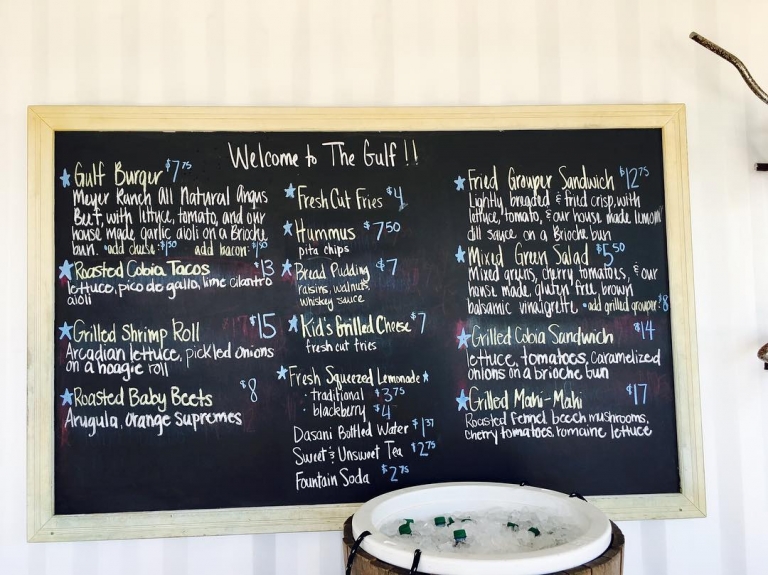 Welcome to The Gulf !!
Gulf Burger $7.75
Meyer Ranch All Natural Angus
Beef, with lettuce, tomato, and our
house made garlic aioli on a Brioche
bun. • add cheese $1.50 add bacon $1.50
Roasted Cobia Tacos $13
lettuce, pico de gallo, lime cilantro
aioli
Grilled Shrimp Roll $15
Arcadian lettuce, pickled onions
on a hoagie roll
Roasted Baby Beets $8
Arugula, Orange Supremes
Fresh Cut Fries $4
Hummus $7.50
pita chips
Bread Pudding $7
raisins, walnuts,
whiskey sauce
Kid's Grilled Cheese $7
fresh cut fries
Fresh Squeezed Lemonade
• traditional $3.75
• blackberry $4
Dasani Bottled Water $1.37
Sweet & Unsweet Tea $2.75
Fountain Soda $2.75
Fried Grouper Sandwich $12.75
Lightly breaded & fried crisp, with
lettuce, tomato, & our house made lemon
dill sauce on a Brioche bun
Mixed Green Salad $5.50
Mixed greens, cherry tomatoes, & our
house made, gluten free, brown
balsamic vinaigrette • add grilled grouper $8
Grilled Cobia Sandwich $14
lettuce, tomatoes, caramelized
onions on a brioche bun
Grilled Mahi-Mahi $17
Roasted fennel, beech mushrooms,
cherry tomatoes, romaine lettuce